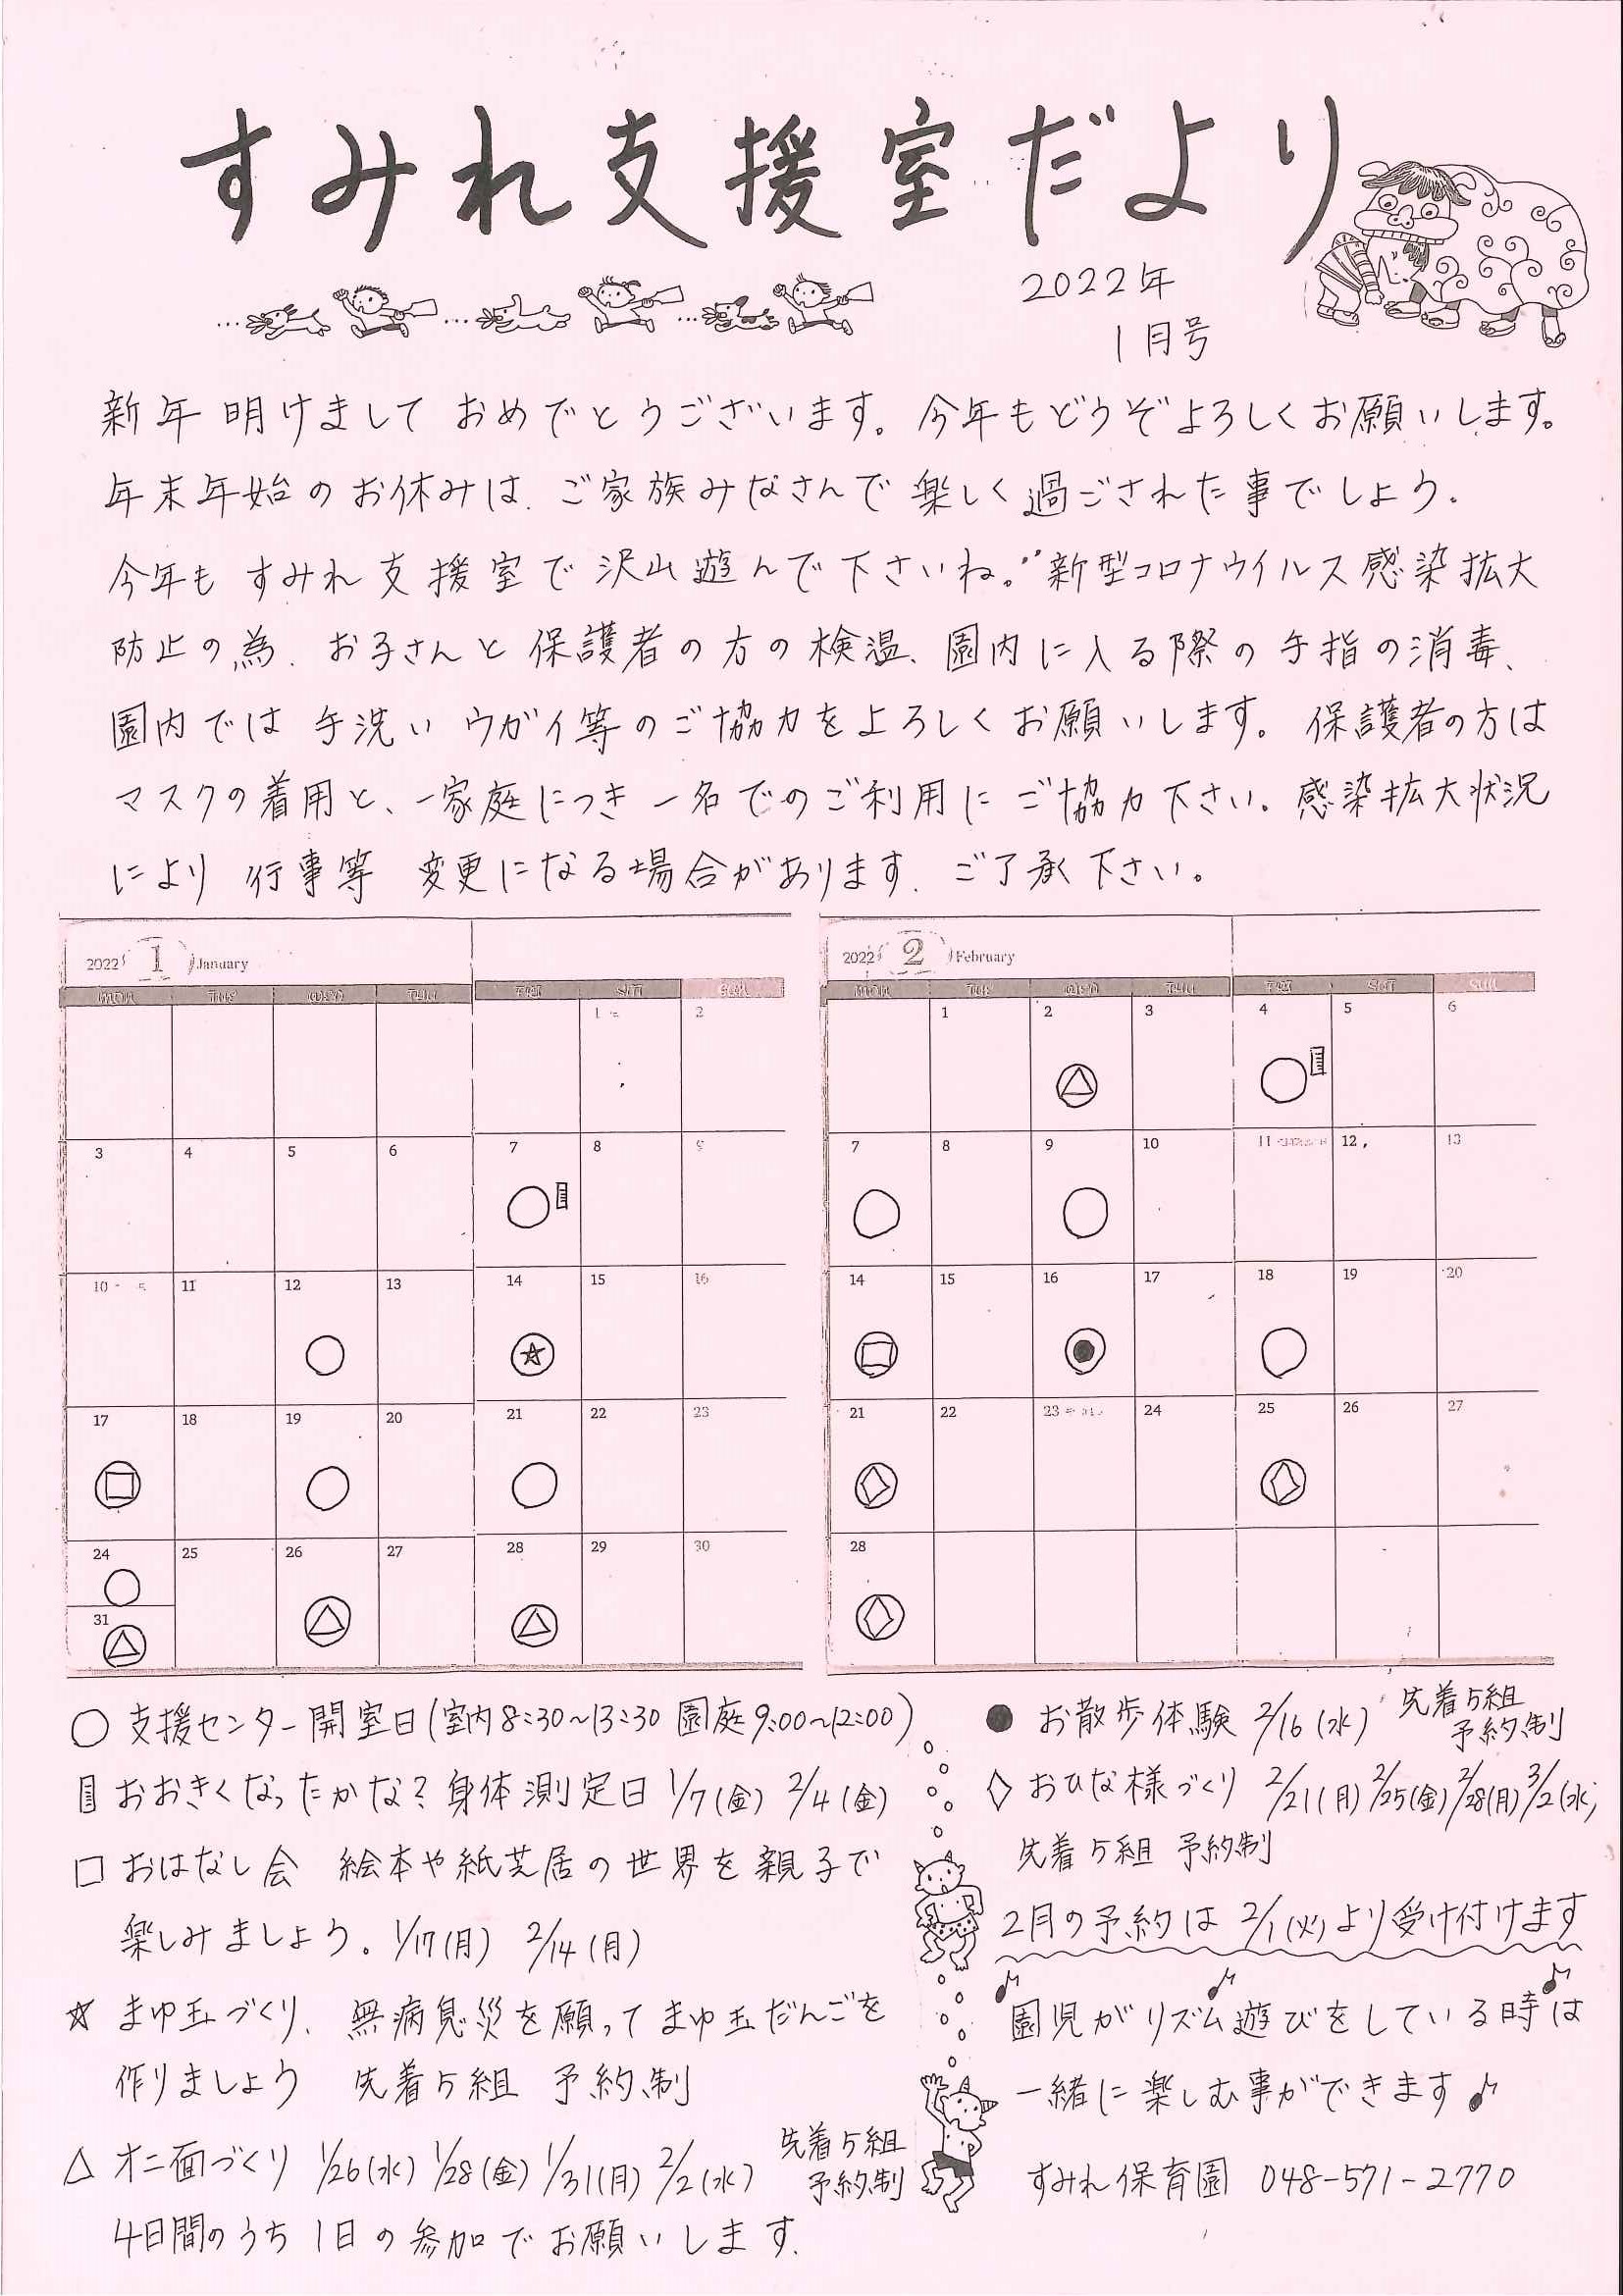 すみれ支援室だより
2022年
1月号
新年明けましておめでとうございます。今年もどうぞよろしくお願いします。
年末年始のお休みは、ご家族みなさんで楽しく過ごされた事でしょう。
今年もすみれ支援室で沢山遊んで下さいね。新型コロナウイルス感染拡大
防止の為、お子さんと保護者の方の検温、園内に入る際の手指の消毒、
園内では手洗いウガイ等のご協力をよろしくお願いします。保護者の方は
マスクの着用と、一家庭につき一名でのご利用にご協力下さい。感染拡大状況
により行事等 変更になる場合があります。ご了承下さい。
2022 1 January
MON TUE WED THU FRI SAT SUN
1 2
3 4 5 6 7 8 9
10 11 12 13 14 15 16
17 18 19 20 21 22 23
24 25 26 27 28 29 30
31
2022 2 February
MON TUE WED THU FRI SAT SUN
1 2 3 4 5 6
7 8 9 10 11 12 13
14 15 16 17 18 19 20
21 22 23 24 25 26 27
28
○ 支援センター開室日(室内8:30~13:30 園庭9:00~12:00)
おおきくなったかな?身体測定日 1/7(金) 2/4(金)
□ おはなし会 絵本や紙芝居の世界を親子で
楽しみましょう。1/17(月) 2/14(月)
☆ まゆ玉づくり、無病息災を願ってまゆ玉だんごを
作りましょう 先着5組 予約制
△ オニ面づくり 1/26(水) 1/28(金) 1/31(月) 2/2(水) 先着5組
予約制
4日間のうち1日の参加でお願いします。
● お散歩体験 2/16(水) 先着5組
予約制
◇ おひな様づくり 2/21(月) 2/25(金) 2/28(月) 3/2(水)
先着5組 予約制
2月の予約は 2/1(火)より受け付けます
♪ ♪ ♪
園児がリズム遊びをしている時は
一緒に楽しむ事ができます♪
すみれ保育園 048-571-2770